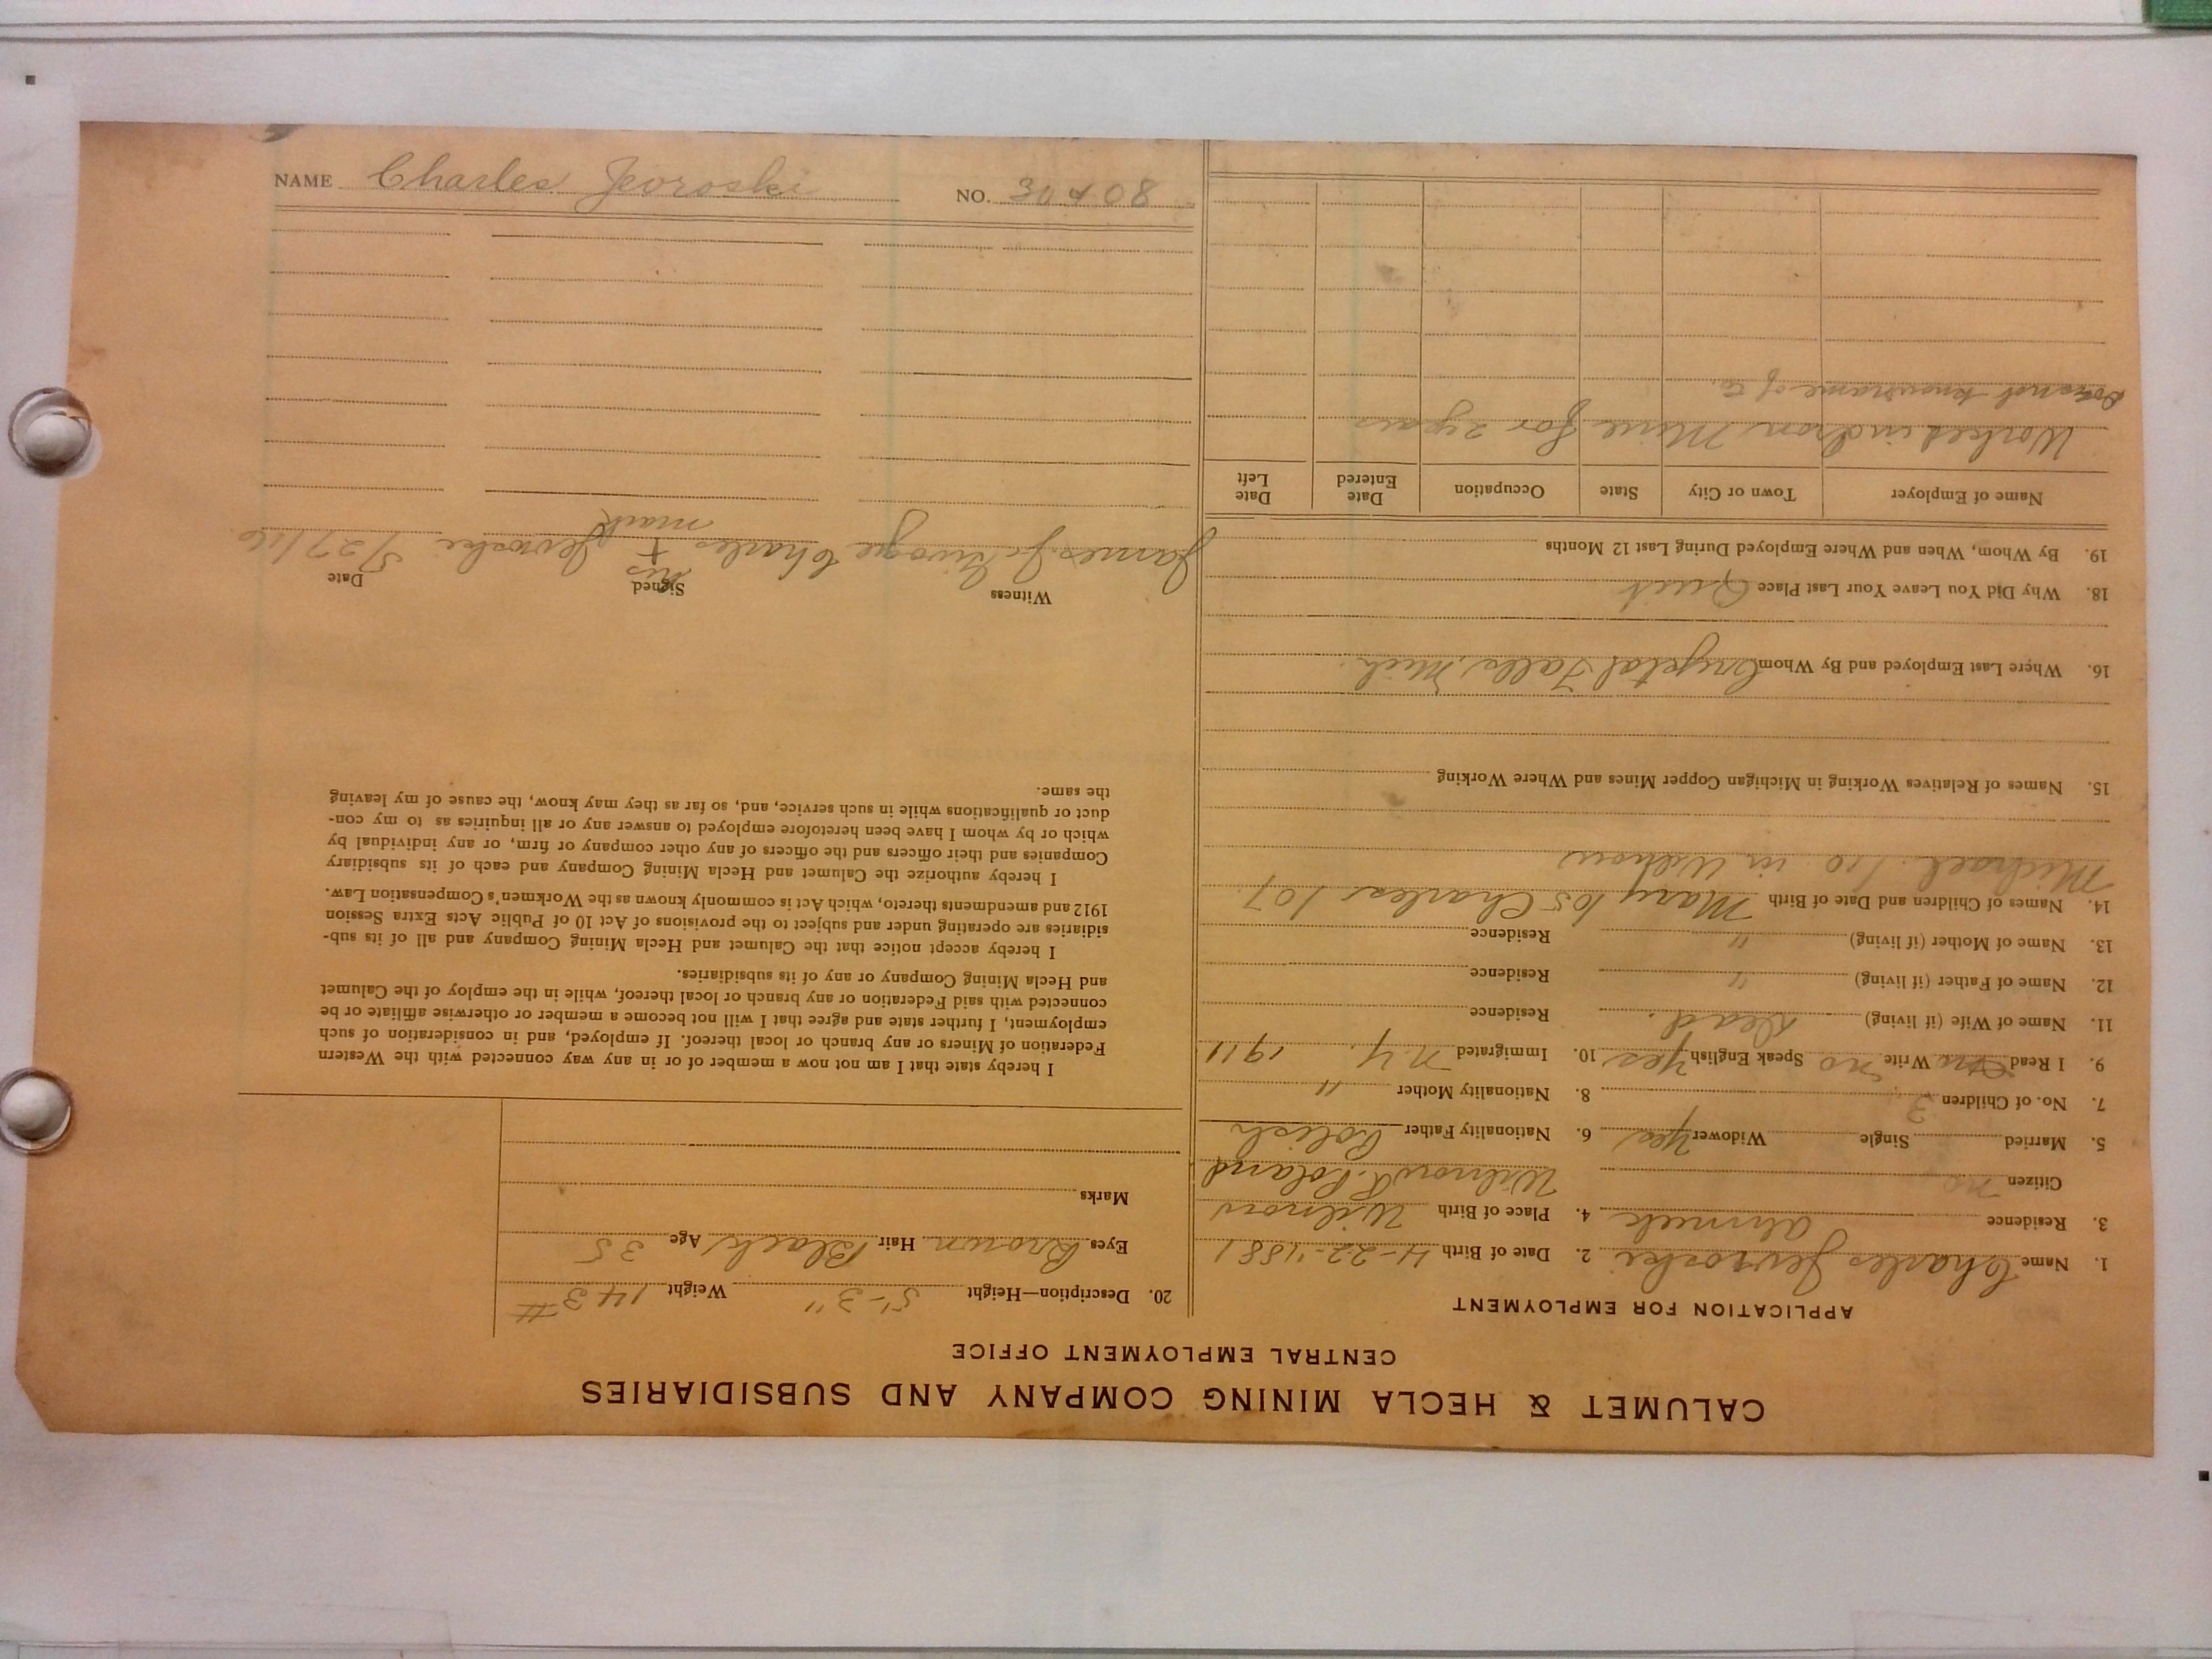 CALUMET & HECLA MINING COMPANY AND SUBSIDIARIES
CENTRAL EMPLOYMENT OFFICE
APPLICATION FOR EMPLOYMENT
1. Name Charles Jevroski 2. Date of Birth 4-22-1881
3. Residence Ahmeek 4. Place of Birth Wilnow
Citizen no Wilnow P. Poland
5. Married Single Widower Yes 6. Nationality Father Polish
7. No. of Children 3 8. Nationality Mother "
9. I Read Write no Speak English Yes 10. Immigrated N.Y. 1911
11. Name of Wife (if living) Dead. Residence
12. Name of Father (if living) " Residence
13. Name of Mother (if living) " Residence
14. Names of Children and Date of Birth Mary /05 Charles /07
Michael /10 in Wilnow
15. Names of Relatives Working in Michigan Copper Mines and Where Working
16. Where Last Employed and By Whom Crystal Falls, Mich.
18. Why Did You Leave Your Last Place Quit
19. By Whom, When and Where Employed During Last 12 Months
Name of Employer Town or City State Occupation Date Entered Date Left
Worked in Iron Mine for 2 years
Does not know name of Co.
20. Description—Height 5'-3" Weight 143 #
Eyes Brown Hair Black Age 35
Marks
I hereby state that I am not now a member of or in any way connected with the Western
Federation of Miners or any branch or local thereof. If employed, and in consideration of such
employment, I further state and agree that I will not become a member or otherwise affiliate or be
connected with said Federation or any branch or local thereof, while in the employ of the Calumet
and Hecla Mining Company or any of its subsidiaries.
I hereby accept notice that the Calumet and Hecla Mining Company and all of its sub-
sidiaries are operating under and subject to the provisions of Act 10 of Public Acts Extra Session
1912 and amendments thereto, which Act is commonly known as the Workmen's Compensation Law.
I hereby authorize the Calumet and Hecla Mining Company and each of its subsidiary
Companies and their officers and the officers of any other company or firm, or any individual by
which or by whom I have been heretofore employed to answer any or all inquiries as to my con-
duct or qualifications while in such service, and, so far as they may know, the cause of my leaving
the same.
Witness Signed Date
his
James J. Charles + Jevroski 5/27/16
mark
NAME Charles Jevroski NO. 30408